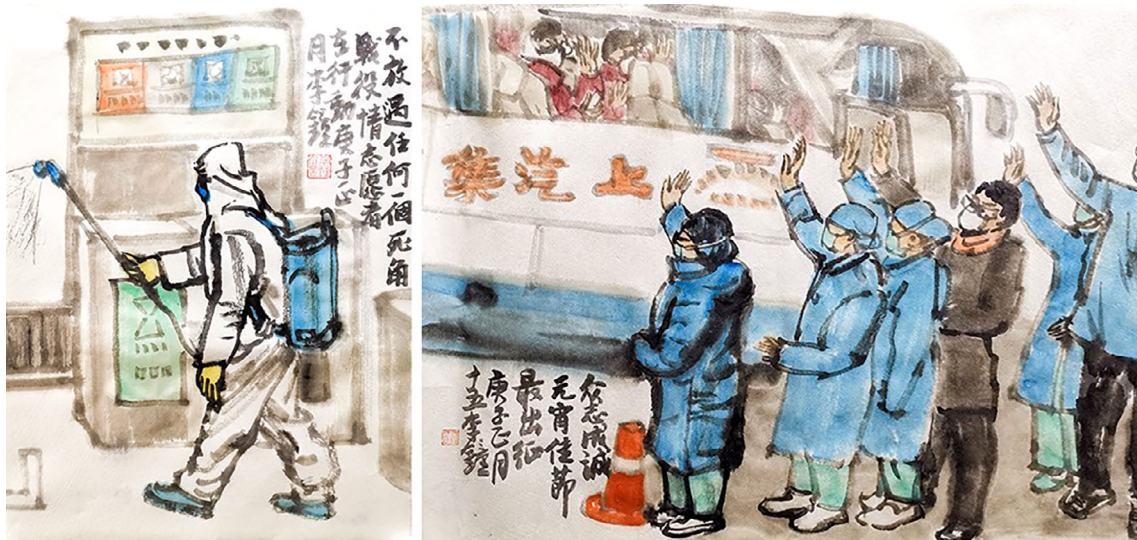 不放過任何一個死角
戰役情志愿者
在行動庚子正
月李鐘
上汽
众志成誠
元宵佳節
最出征
庚子正月
十五李鐘